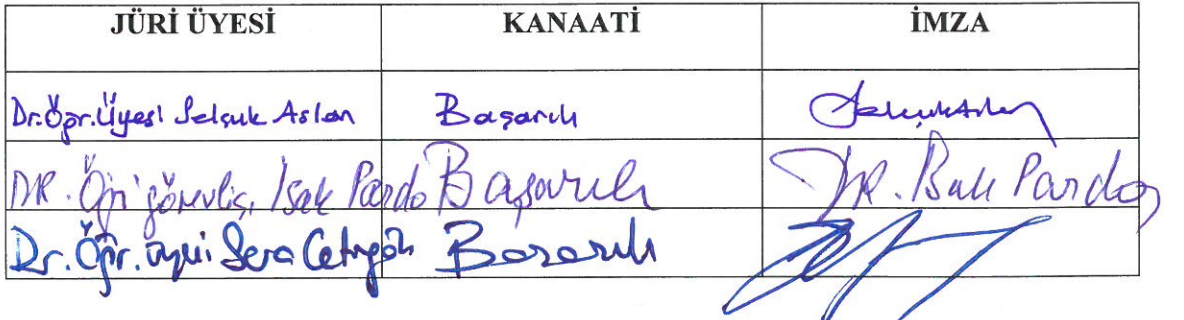 JÜRİ ÜYESİ KANAATİ İMZA
Dr.Öğr.Üyesi Selçuk Aslan Başarılı Selçuk Aslan
DR. Öğr görevlisi Isak Pardo Başarılı DR. Isak Pardo
Dr. Öğr. üyesi Sera Başarılı